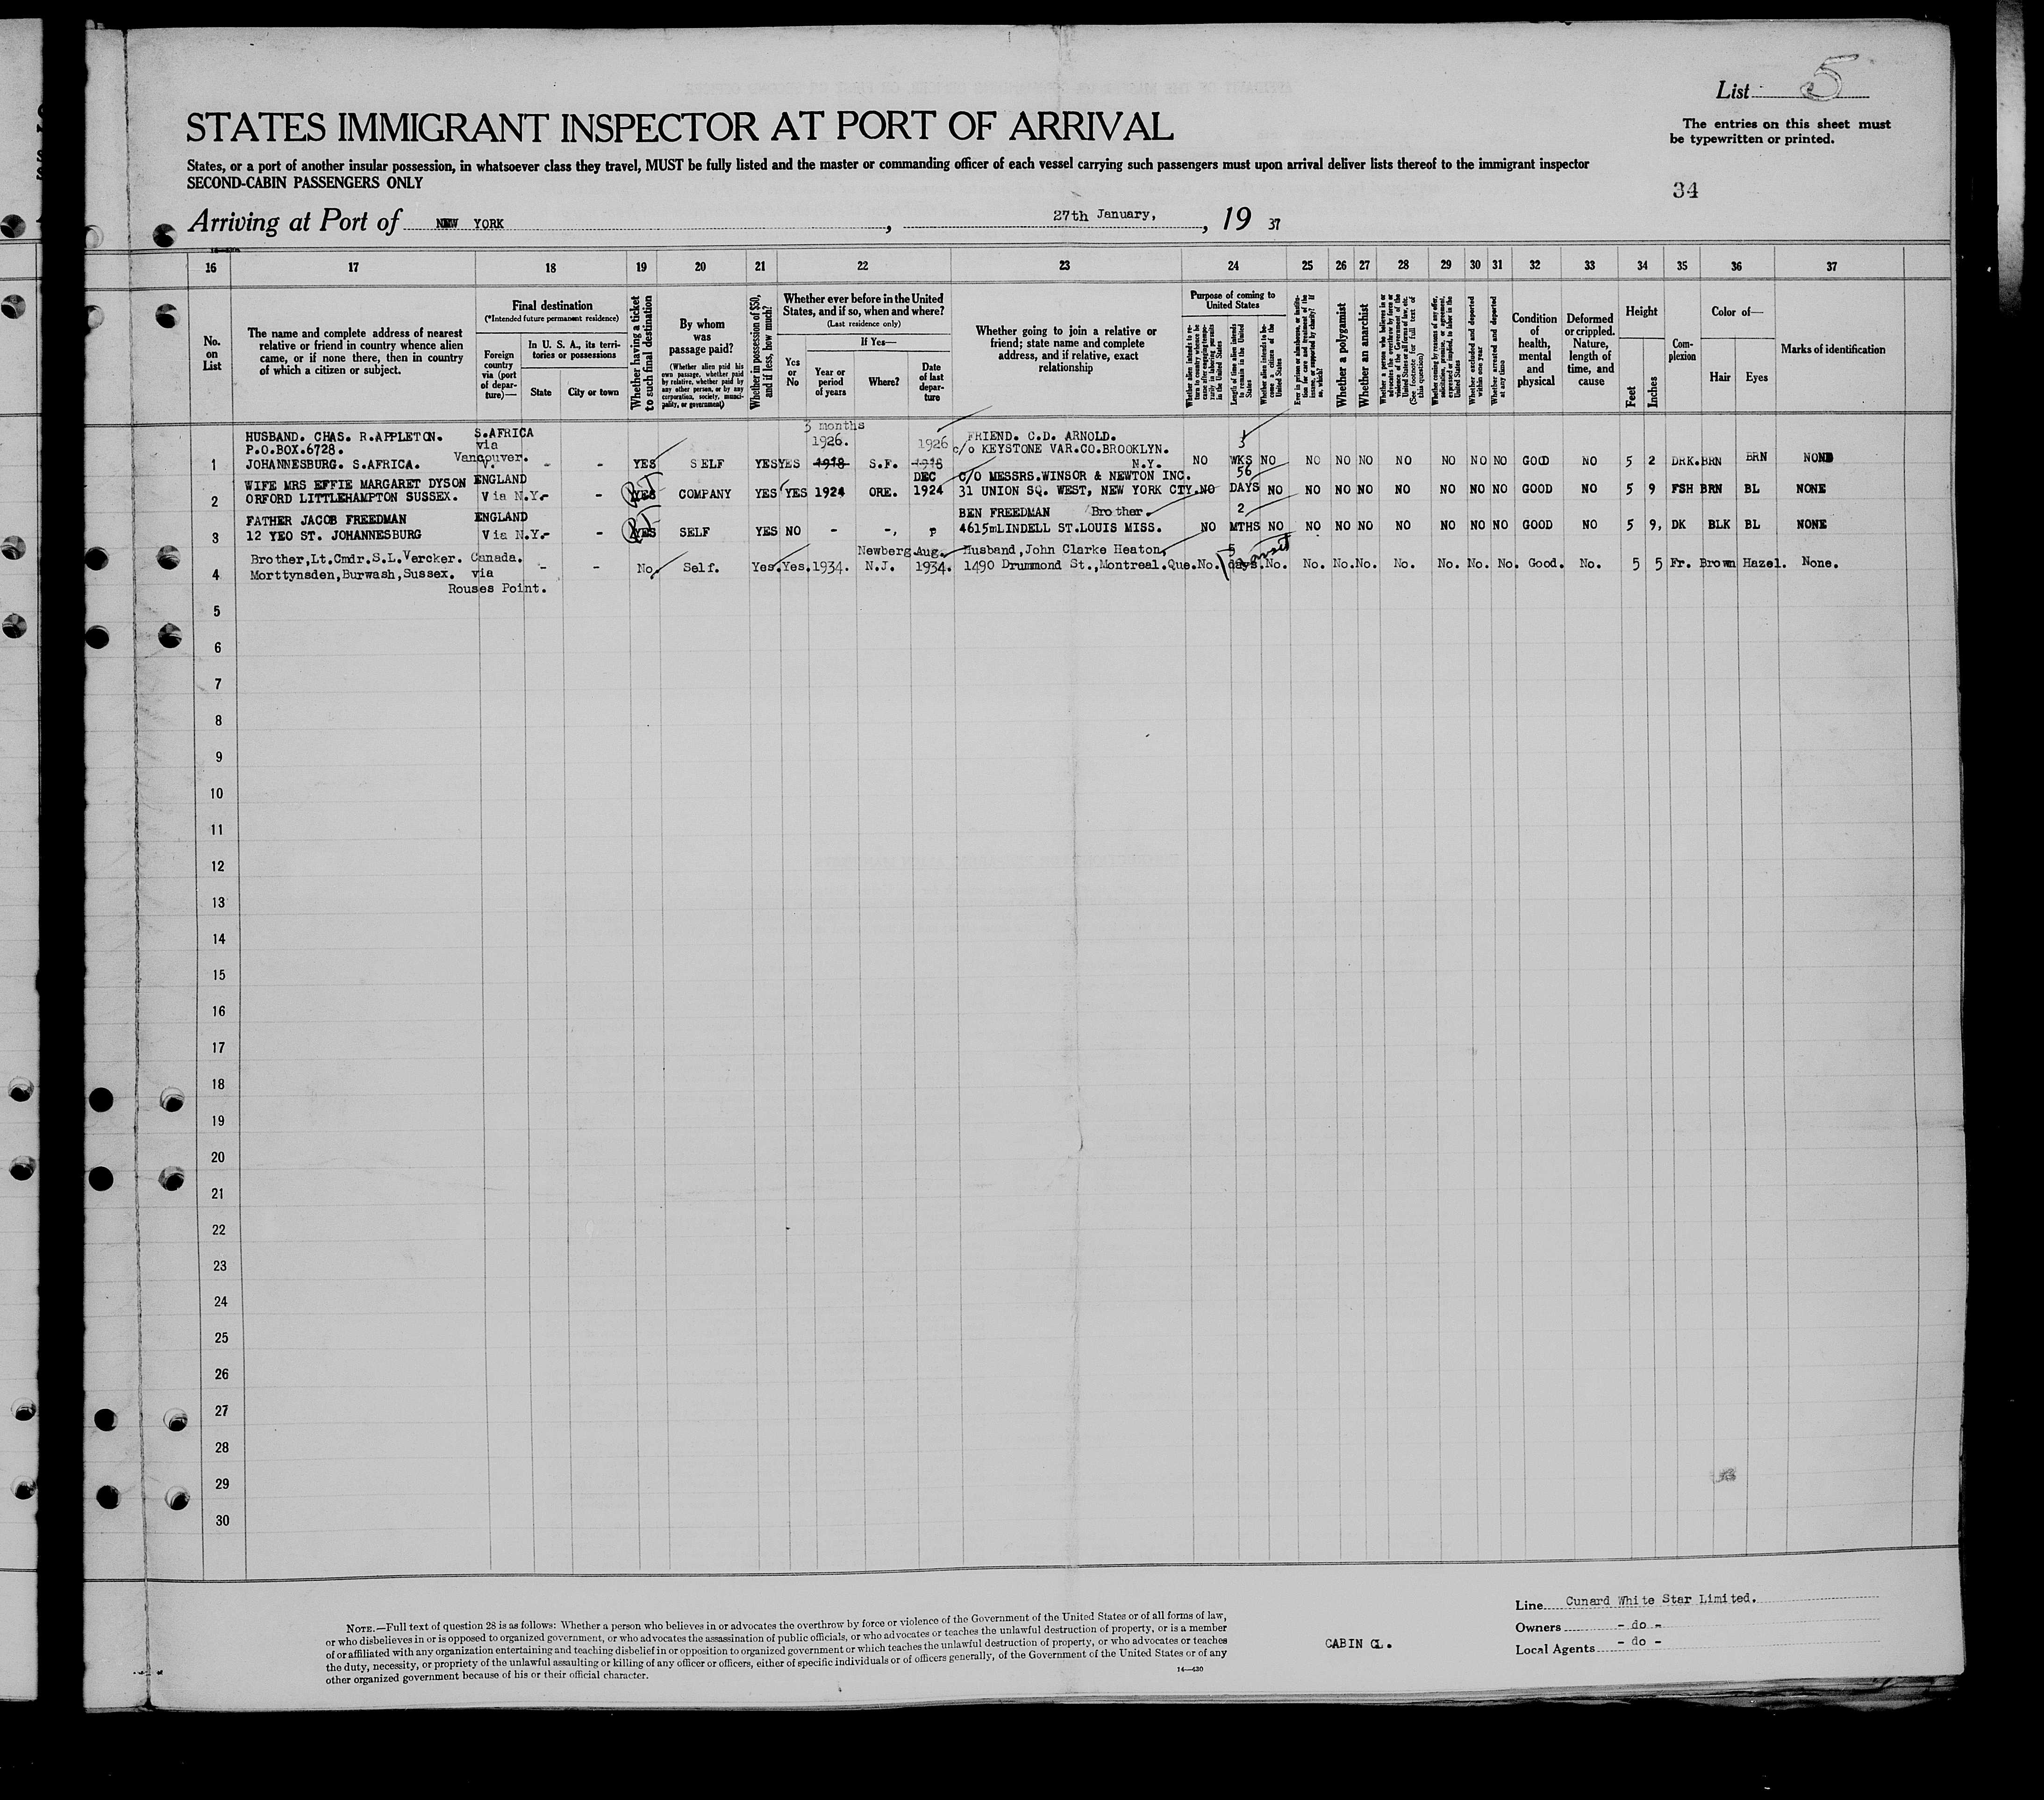 List 5
STATES IMMIGRANT INSPECTOR AT PORT OF ARRIVAL
The entries on this sheet must
be typewritten or printed.
States, or a port of another insular possession, in whatsoever class they travel, MUST be fully listed and the master or commanding officer of each vessel carrying such passengers must upon arrival deliver lists thereof to the immigrant inspector
SECOND-CABIN PASSENGERS ONLY
34
Arriving at Port of NEW YORK, 27th January, , 19 37
16 17 18 19 20 21 22 23 24 25 26 27 28 29 30 31 32 33 34 35 36 37
No.
on
List
The name and complete address of nearest
relative or friend in country whence alien
came, or if none there, then in country
of which a citizen or subject.
Final destination
(*Intended future permanent residence)
Foreign
country
via (port
of depar-
ture)—
In U. S. A., its terri-
tories or possessions
State
City or town
Whether having a ticket
to such final destination
By whom
was
passage paid?
(Whether alien paid his
own passage, whether paid
by relative, whether paid by
any other person, or by any
corporation, society, munici-
pality, or government)
Whether in possession of $50,
and if less, how much?
Whether ever before in the United
States, and if so, when and where?
(Last residence only)
Yes
or
No
If Yes—
Year or
period
of years
Where?
Date
of last
depar-
ture
Whether going to join a relative or
friend; state name and complete
address, and if relative, exact
relationship
Purpose of coming to
United States
Whether alien intends to re-
turn to country whence he
came after engaging tempo-
rarily in laboring pursuits
in the United States
Length of time alien intends
to remain in the United
States
Whether alien intends to be-
come a citizen of the
United States
Ever in prison or almshouse, or institu-
tion for care and treatment of the
insane, or supported by charity? If
so, which?
Whether a polygamist
Whether an anarchist
Whether a person who believes in or
advocates the overthrow by force or
violence of the Government of the
United States or all forms of law, etc.
(See footnote for full text of
this question)
Whether coming by reasons of any offer,
solicitation, promise, or agreement,
expressed or implied, to labor in the
United States
Whether excluded and deported
within one year
Whether arrested and deported
at any time
Condition
of
health,
mental
and
physical
Deformed
or crippled.
Nature,
length of
time, and
cause
Height
Feet
Inches
Com-
plexion
Color of—
Hair
Eyes
Marks of identification
HUSBAND. CHAS. R.APPLETON. S.AFRICA 3 months FRIEND. C.D. ARNOLD.
P.O.BOX.6728. via 1926. 1926 c/o KEYSTONE VAR.CO.BROOKLYN. 3
Vancouver.
1 JOHANNESBURG. S.AFRICA. - - YES SELF YES YES 1918 S.F. 1918 N.Y. NO WKS NO NO NO NO NO NO NO NO GOOD NO 5 2 DRK. BRN BRN NONE
WIFE MRS EFFIE MARGARET DYSON ENGLAND DEC C/O MESSRS.WINSOR & NEWTON INC. 56
2 ORFORD LITTLEHAMPTON SUSSEX. Via N.Y.- - YES COMPANY YES YES 1924 ORE. 1924 31 UNION SQ. WEST, NEW YORK CTY. NO DAYS NO NO NO NO NO NO NO NO GOOD NO 5 9 FSH BRN BL NONE
FATHER JACOB FREEDMAN ENGLAND BEN FREEDMAN Brother 2
3 12 YEO ST. JOHANNESBURG Via N.Y.- - YES SELF YES NO - -, 4615mLINDELL ST.LOUIS MISS. NO MTHS NO NO NO NO NO NO NO NO GOOD NO 5 9, DK BLK BL NONE
Brother,Lt.Cmdr.S.L.Vercker. Canada. Newberg Aug. Husband,John Clarke Heaton, 5
4 Morttynsden,Burwash,Sussex. via - - No. Self. Yes. Yes. 1934. N.J. 1934. 1490 Drummond St.,Montreal.Que. No. days. No. No. No. No. No. No. No. No. Good. No. 5 5 Fr. Brown Hazel. None.
Rouses Point.
5
6
7
8
9
10
11
12
13
14
15
16
17
18
19
20
21
22
23
24
25
26
27
28
29
30
NOTE.—Full text of question 28 is as follows: Whether a person who believes in or advocates the overthrow by force or violence of the Government of the United States or of all forms of law,
or who disbelieves in or is opposed to organized government, or who advocates the assassination of public officials, or who advocates or teaches the unlawful destruction of property, or is a member
of or affiliated with any organization entertaining and teaching disbelief in or opposition to organized government or which teaches the unlawful destruction of property, or who advocates or teaches
the duty, necessity, or propriety of the unlawful assaulting or killing of any officer or officers, either of specific individuals or of officers generally, of the Government of the United States or of any
other organized government because of his or their official character.
14—430
CABIN CL.
Line Cunard White Star Limited.
Owners - do -
Local Agents - do -